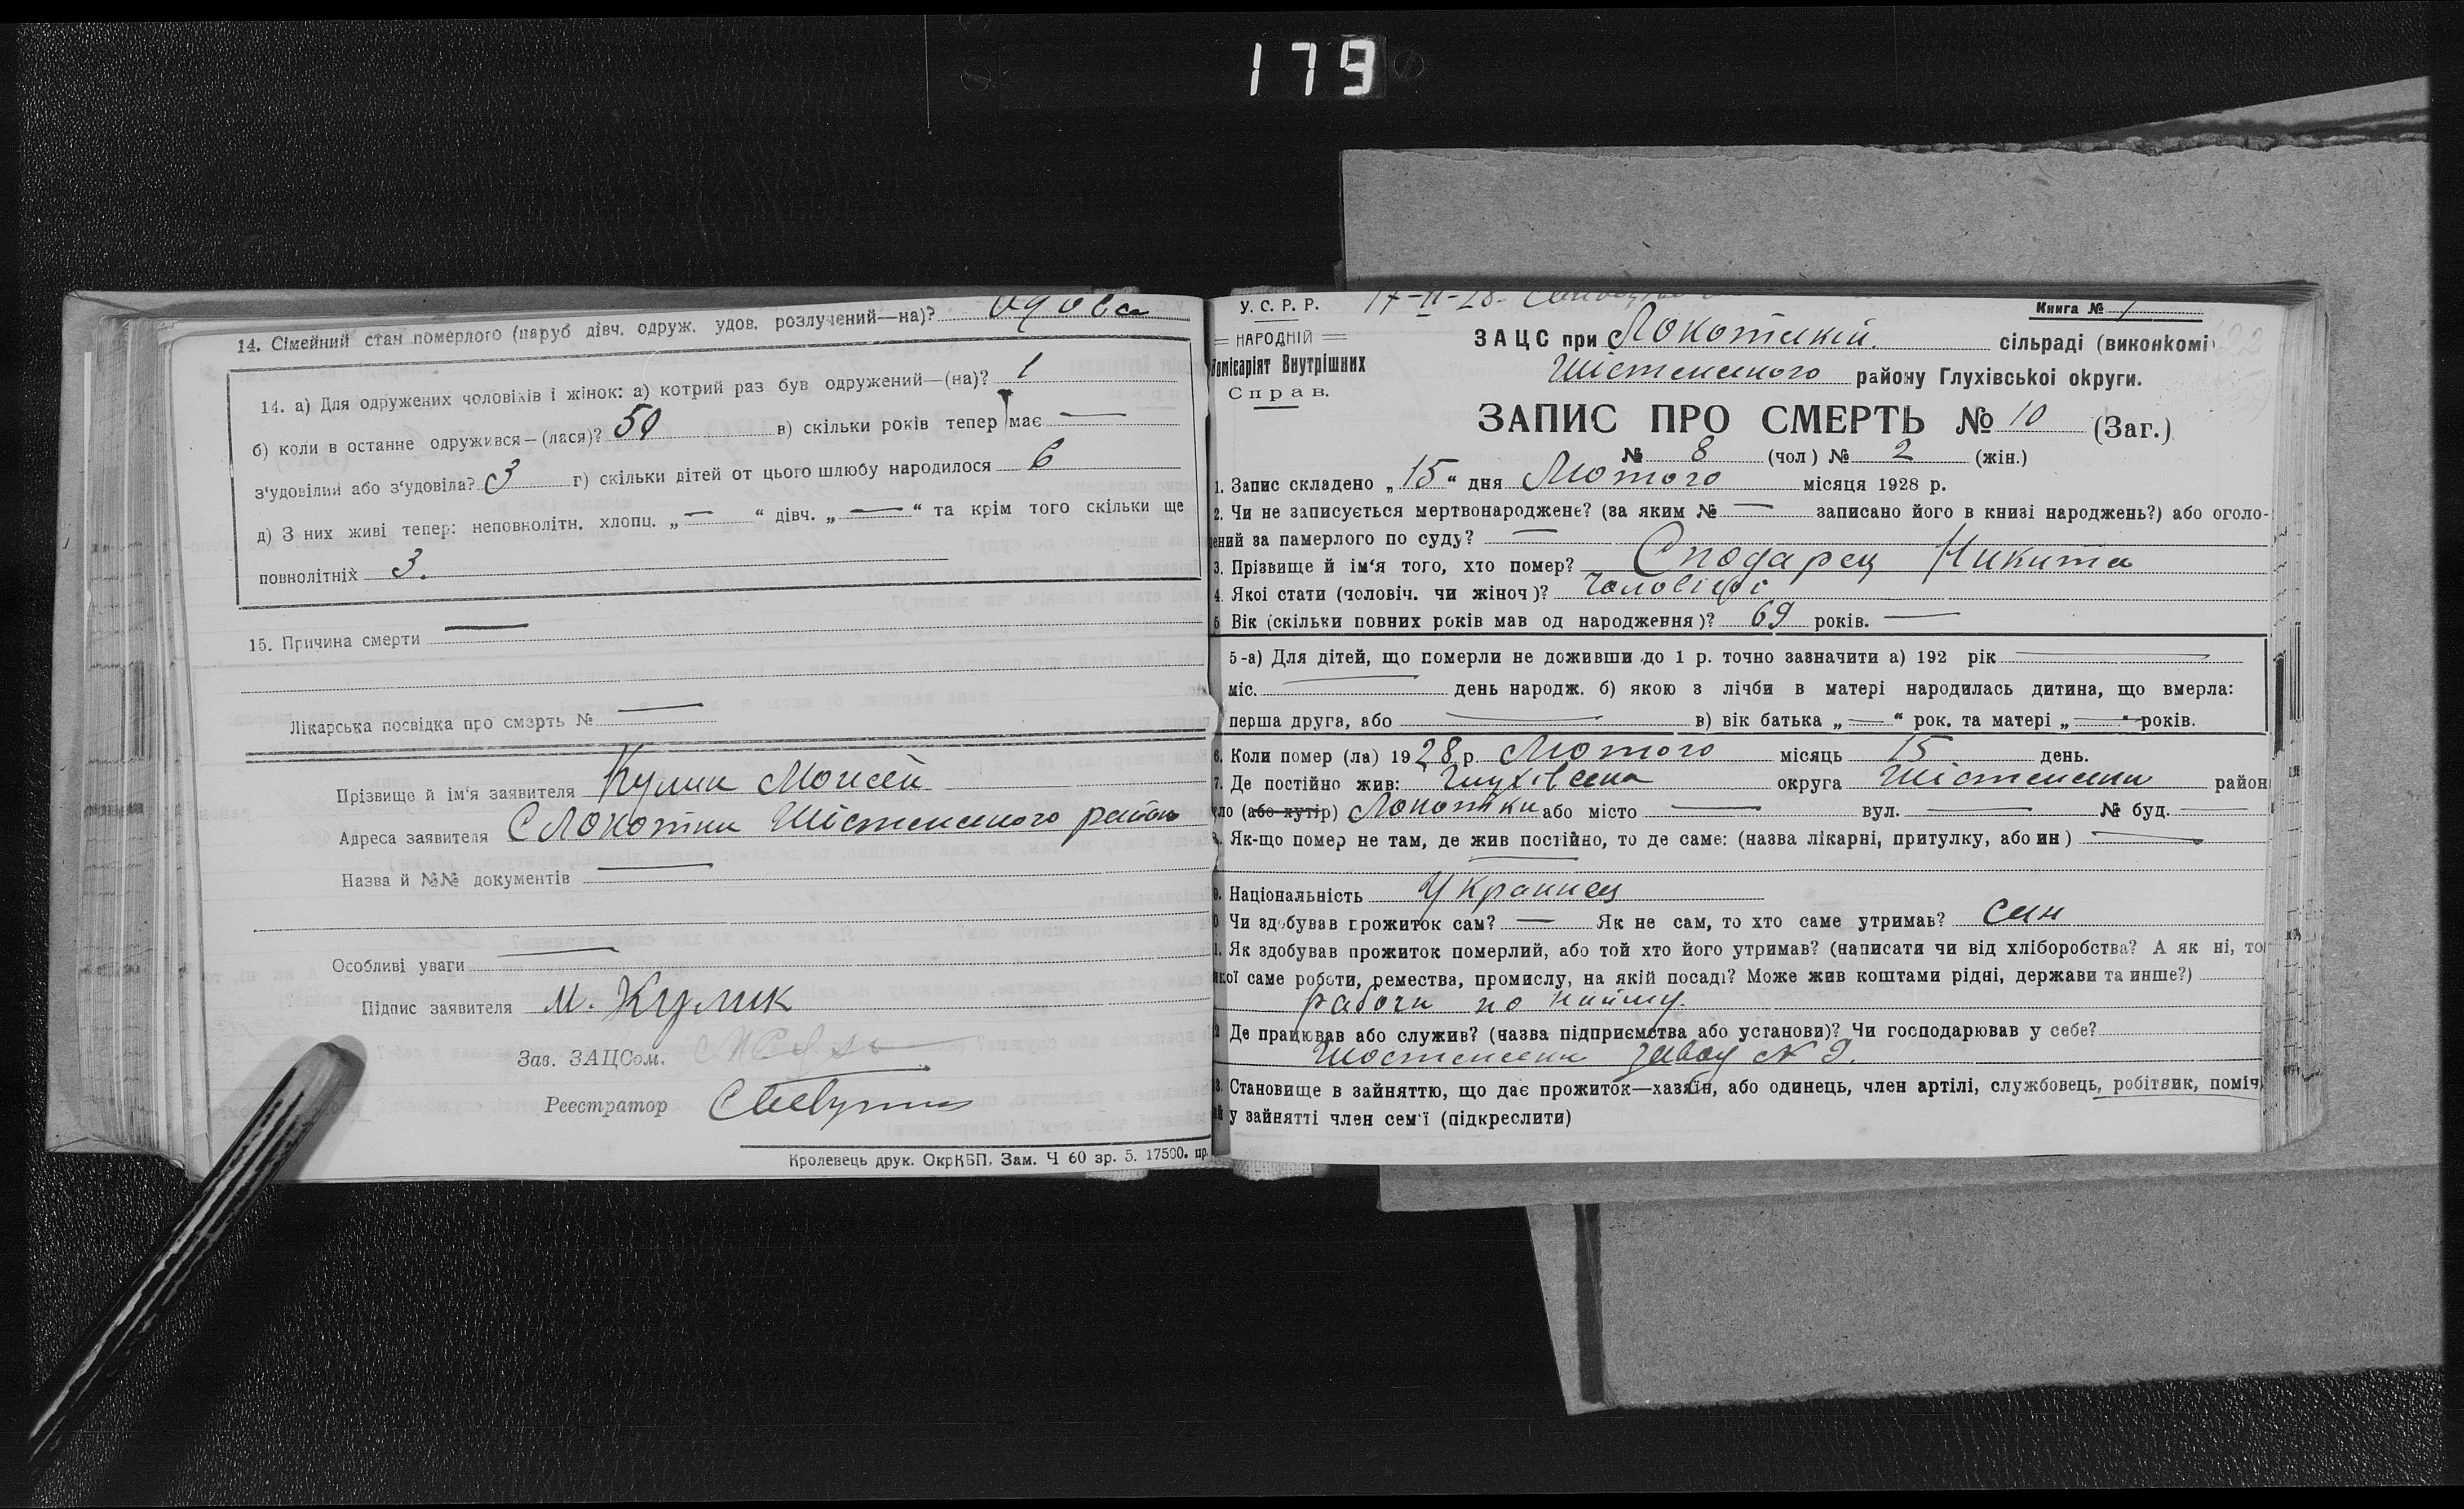 179
14. Сімейний стан померлого (паруб дівч. одруж. удов. розлучений—на)? Удова
14. а) Для одружених чоловіків і жінок: а) котрий раз був одружений—(на)? 1
б) коли в останне одружився—(лася)? 50 в) скільки років тепер має —
з'удовілий або з'удовіла? 3 г) скільки дітей от цього шлюбу народилося 6
д) З них живі тепер: неповнолітн. хлопц. „ — “ дівч. „ — “ та крім того скільки ще
повнолітніх 3.
15. Причина смерти —
Лікарська посвідка про смэрть № —
Прізвище й ім'я заявителя Кулик Моисей
Адреса заявителя С Локотки Шістенського району
Назва й №№ документів —
Особливі уваги —
Підпис заявителя М. Кулик
Зав. ЗАЦСом.
Реєстратор
Кролевець друк. ОкрКБП. Зам. Ч 60 зр. 5. 17500. пр.
У. С. Р. Р. 17-II-28.
Книга № 1
НАРОДНІЙ
Комісаріят Внутрішних
Справ.
ЗАЦС при Локотській сільраді (виконкомі)
Шістенського району Глухівської округи.
ЗАПИС ПРО СМЕРТЬ № 10 (Заг.)
№ 8 (чол) № 2 (жін.)
1. Запис складено „ 15 “ дня Лютого місяця 1928 р.
2. Чи не записується мертвонароджене? (за яким № — записано його в книзі народжень?) або оголо-
шений за памерлого по суду? —
3. Прізвище й ім'я того, хто помер? Сподарец Никита
4. Якої стати (чоловіч. чи жіноч)? Чоловічої
5 Вік (скільки повних років мав од народження)? 69 років. —
5-а) Для дітей, що померли не доживши до 1 р. точно зазначити а) 192 рік —
міс. — день народж. б) якою з лічби в матері народилась дитина, що вмерла:
перша друга, або — в) вік батька „ — “ рок. та матері „ — “ років.
6. Коли помер (ла) 1928 р. Лютого місяць 15 день.
7. Де постійно жив: Глухівська округа Шістенський район
село (або хутір) Локотки або місто — вул. — № буд. —
8. Як-що помер не там, де жив постійно, то де саме: (назва лікарні, притулку, або ин) —
9. Національність Украинец
10 Чи здобував прожиток сам? — Як не сам, то хто саме утримав? син
11. Як здобував прожиток померлий, або той хто його утримав? (написати чи від хліборобства? А як ні, то
якої саме роботи, ремества, промислу, на якій посаді? Може жив коштами рідні, держави та инше?)
рабочи по найму.
12 Де працював або служив? (назва підприємства або установи)? Чи господарював у себе?
Шостенский завод № 9.
13. Становище в зайняттю, що дає прожиток—хазяїн, або одинець, член артілі, службовець, робітник, поміч
ний у зайнятті член сем'ї (підкреслити)